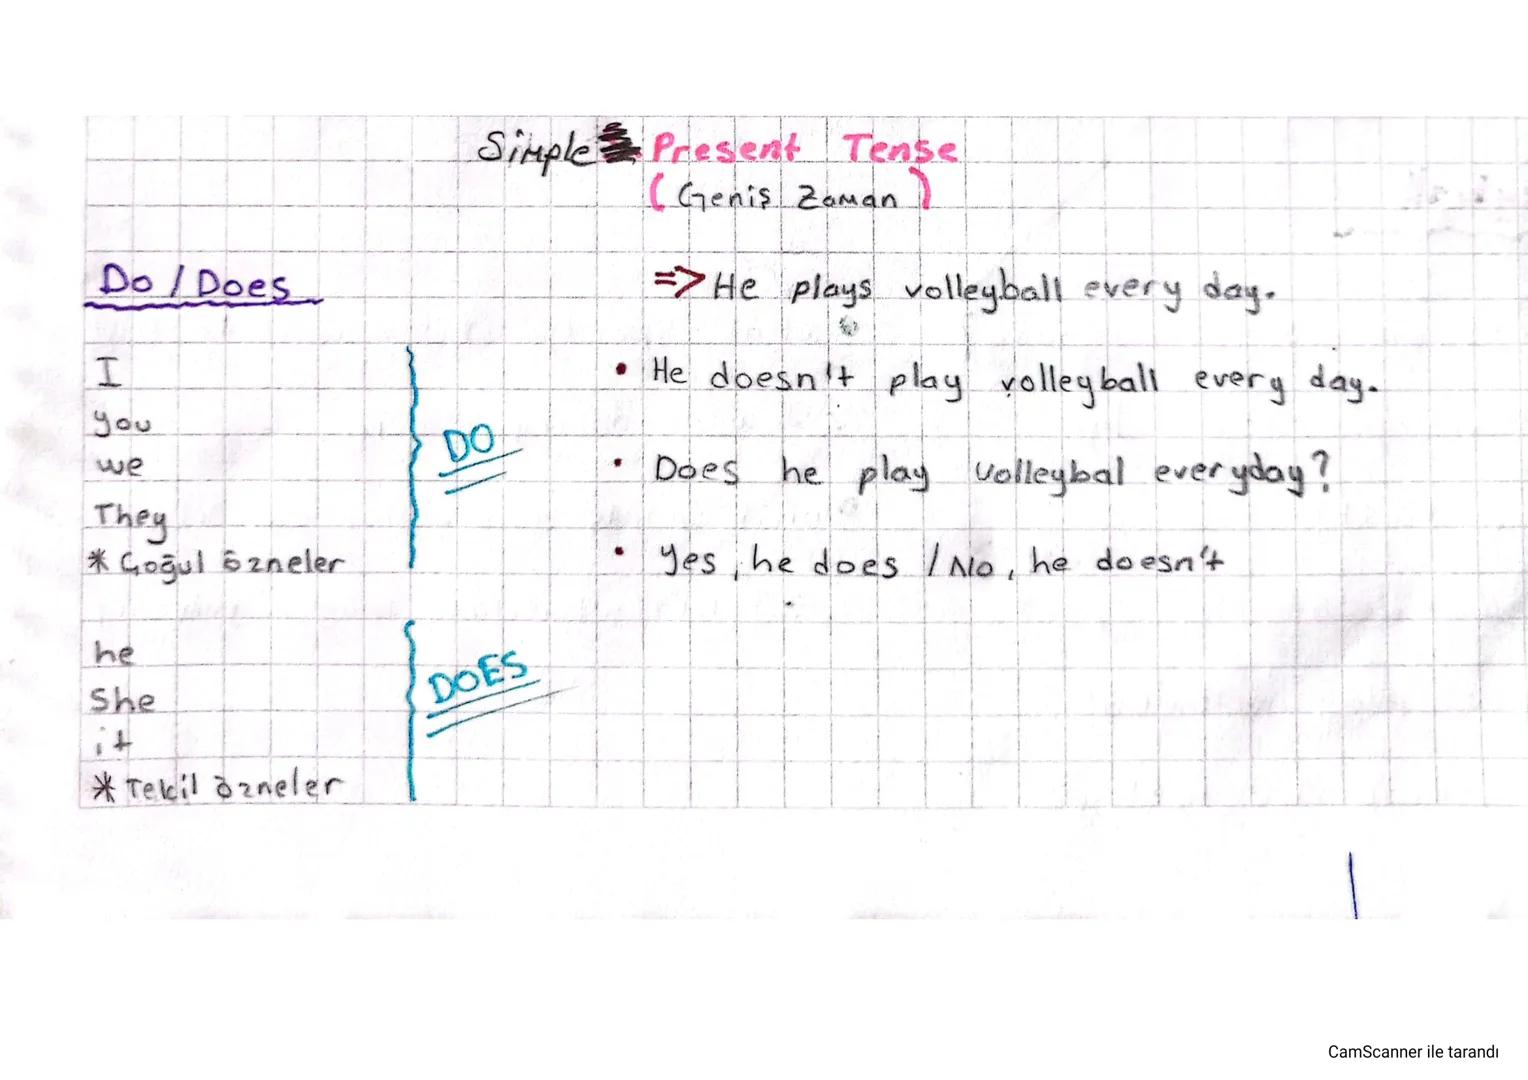 Simple Present Tense
(Geniş Zaman)
Do / Does
I
you
we
They
* Çoğul özneler
DO
he
She
it
* Tekil özneler
DOES
=> He plays volleyball every day.
• He doesn't play volleyball every day.
• Does he play volleybal everyday?
• Yes, he does / No, he doesn't
CamScanner ile tarandı